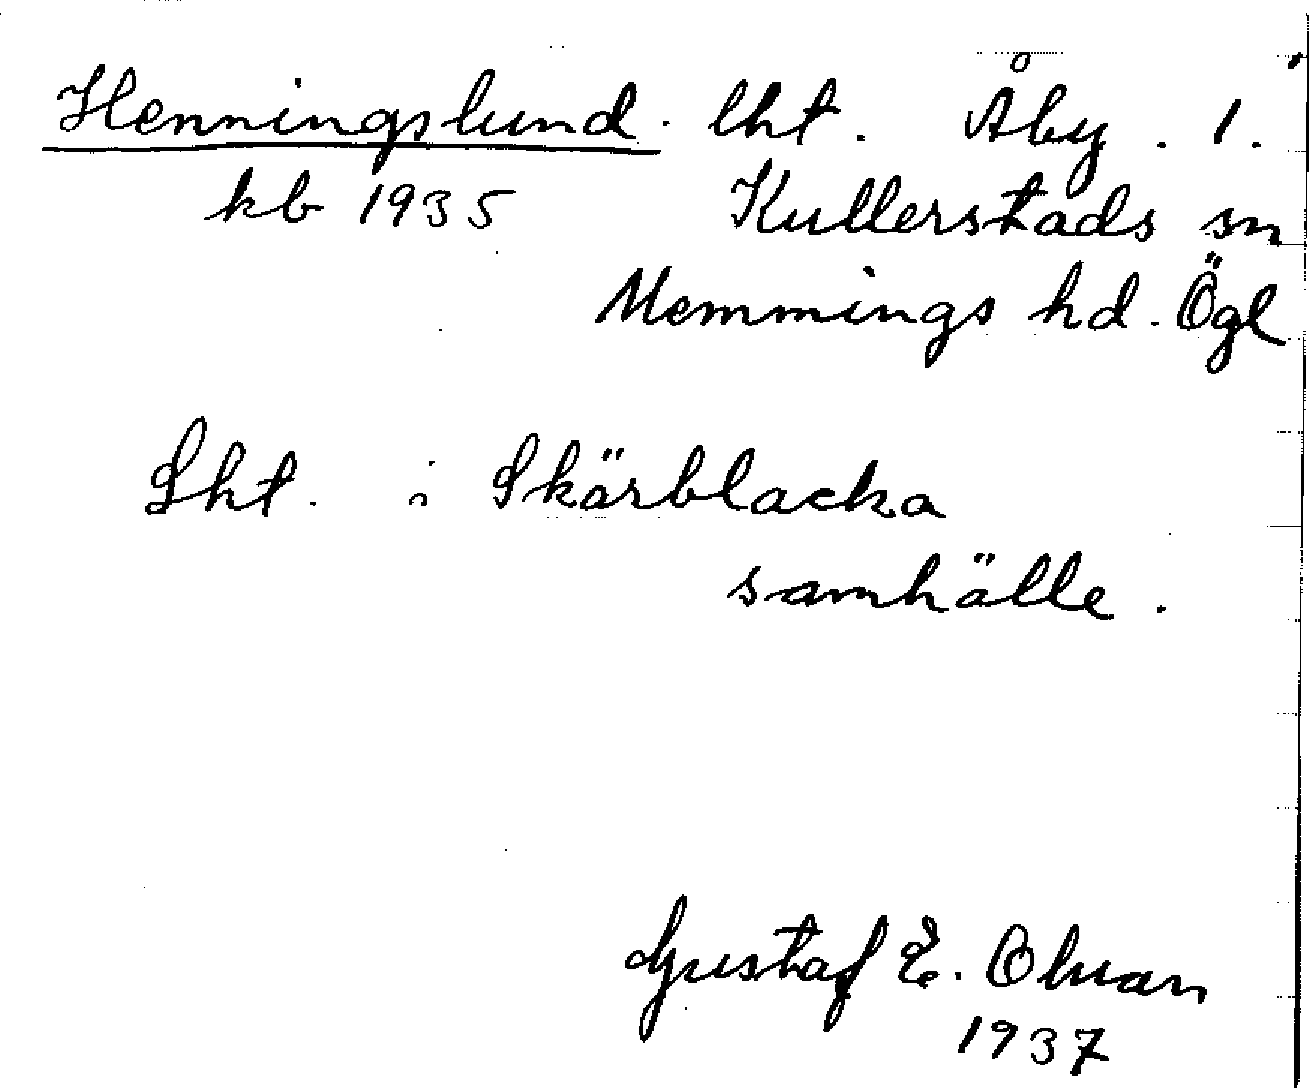 Henningslund. lht. Åby. 1.
kb 1935 Kullerstads sn
Memmings hd. Ögl
Lht. i Skärblacka
samhälle.
Gustaf E. Olman
1937